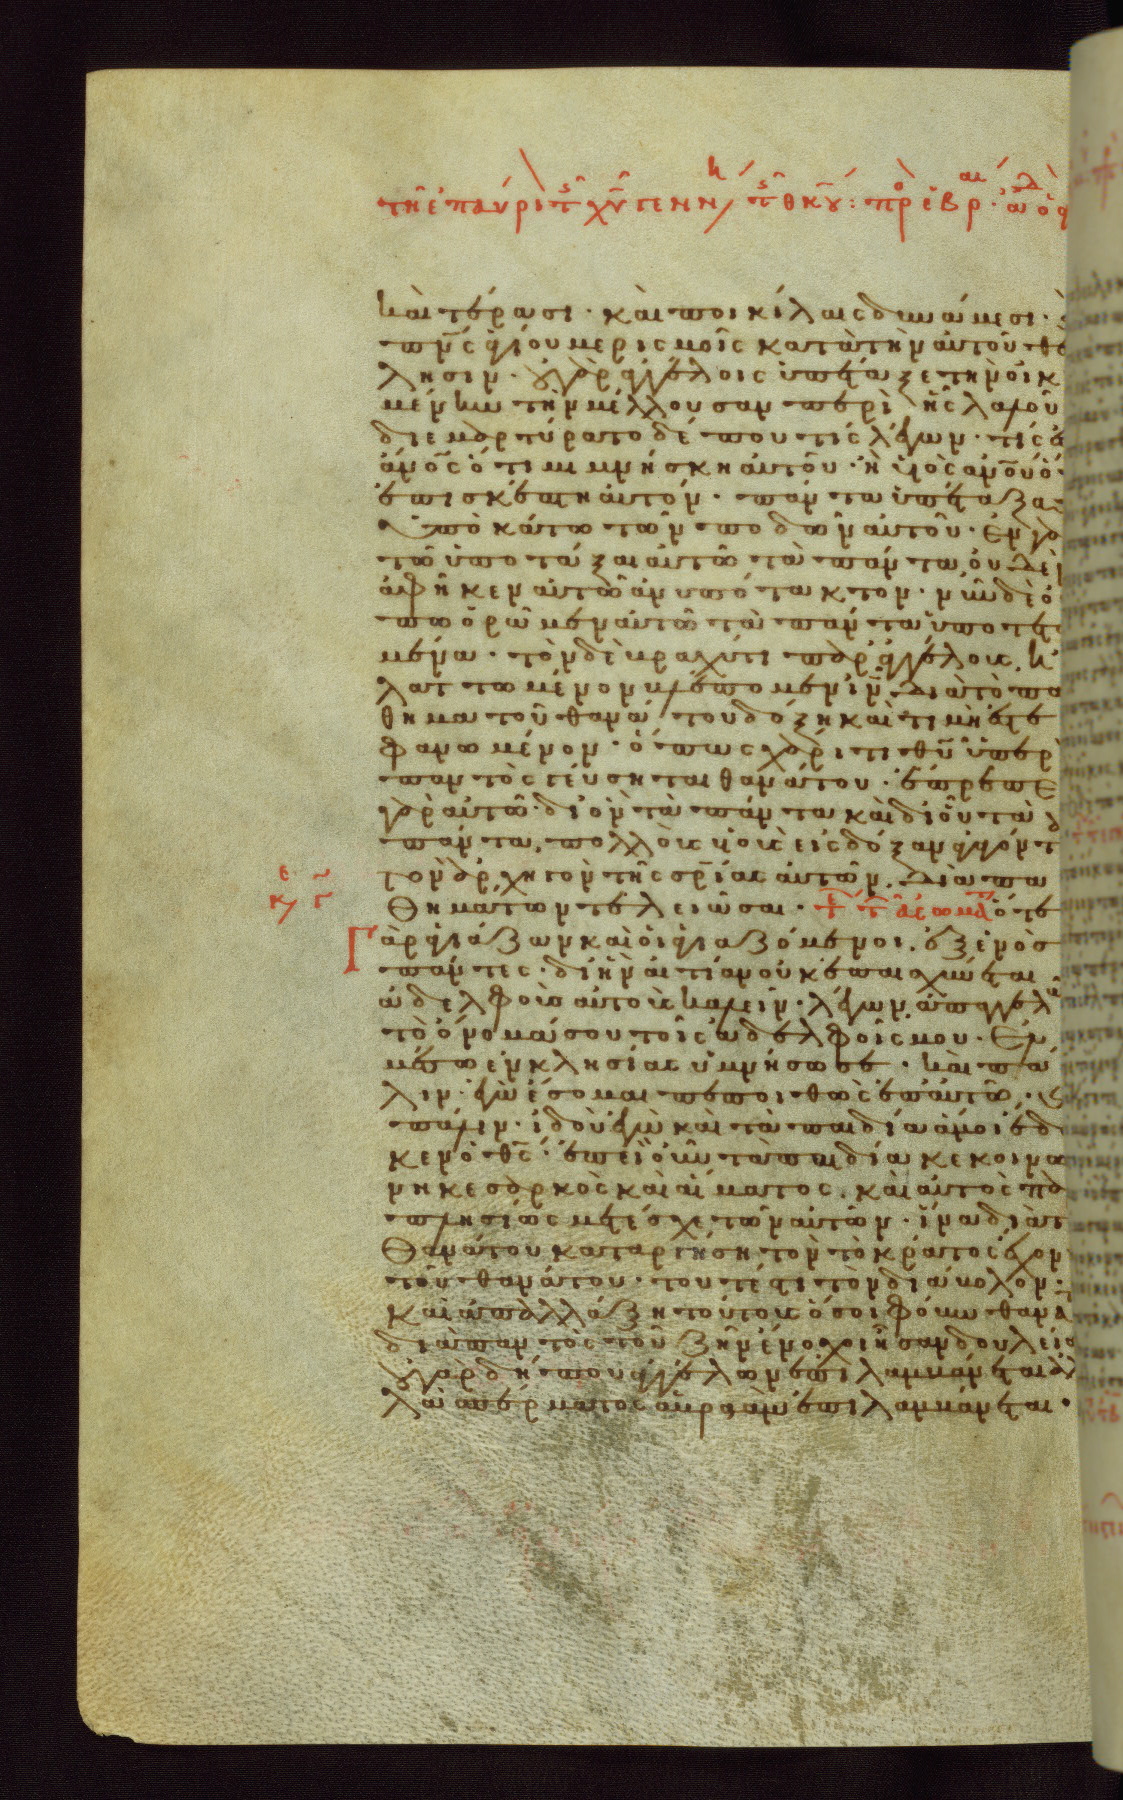 τῆ ἐπαύρι τῆς χυ γεννή τῆς θκου: πρὸ ἑβρ
καὶ τέρασι· καὶ ποικίλαις δυνάμεσι·
πνς ἁγίου μερισμοῖς κατὰ τὴν αὐτοῦ θε
λησιν· οὐ γὰρ ἀγγέλοις ὑπέταξε τὴν οἰκ
μένην τὴν μέλλουσαν περὶ ἧς λαλοῦ
διεμαρτύρατο δέ που τίς λέγων· τίς ἐ
ἀνος ὅτι μιμνήσκη αὐτοῦ· ἢ υἱὸς ανου ὁ
ἐπισκέπτη αὐτόν· πάντα ὑπέταξας
ὑποκάτω τῶν ποδῶν αὐτοῦ· ἐν γὰ
τῶ ὑποτάξαι αὐτῶ τὰ πάντα, οὐδὲ
ἀφῆκεν αὐτῶ ἀνυπότακτον· νῦν δὲ ὁ
πω ὁρῶμεν αὐτῶ τὰ πάντα ὑποτε
μένα· τὸν δὲ βραχύ τι παρ ἀγγέλους ἠ
λαττωμένον βλέπομεν ιν διὰ τὸ πά
θημα τοῦ θανάτου δόξη καὶ τιμῆ ἐστε
φανωμένον· ὅπως χάριτι θυ ὑπὲρ
παντὸς γεύσηται θανάτου· ἔπρεπε
γὰρ αὐτῶ· δι ὃν τὰ πάντα καὶ δι οὗ τὰ
πάντα, πολλοὺς υἱοὺς εἰς δόξαν ἀγαγόντ
τὸν ἀρχηγὸν τῆς σρίας αὐτῶν, διὰ πα
θημάτων τελειῶσαι· ὅτε
Γὰρ ἁγιάζων καὶ οἱ ἁγιαζόμενοι, ἐξ ἑνὸς
πάντες· δι ἣν αἰτίαν οὐκ ἐπαισχύνεται
ἀδελφοὺς αὐτοὺς καλεῖν· λέγων, ἀπαγγελῶ
τὸ ὄνομά σου τοῖς ἀδελφοῖς μου· ἐν
μέσω ἐκκλησίας ὑμνήσω σε· καὶ πά
λιν· ἐγὼ ἔσομαι πεποιθὼς ἐπ αὐτῶ·
πάλιν· ἰδοὺ ἐγὼ καὶ τὰ παιδία ἅ μοι ἔδ
κεν ὁ θς· ἐπεὶ οὖν τὰ παιδία κεκοινω
νηκε σαρκὸς καὶ αἵματος, καὶ αὐτὸς πα
πλησίως μετέσχε τῶν αὐτῶν· ἵνα διὰ τ
θανάτου καταργήση τὸν τὸ κράτος ἔχον
τοῦ θανάτου· τουτέστι τὸν διάβολον·
καὶ ἀπαλλάξη τούτους ὅσοι φόβω θανά
διὰ παντὸς τοῦ ζῆν ἔνοχοι ἦσαν δουλεί
οὐ γὰρ δήπου ἀγγέλων ἐπιλαμβάνεται ἀλ
λὰ σπέρματος ἀβραὰμ ἐπιλαμβάνεται·